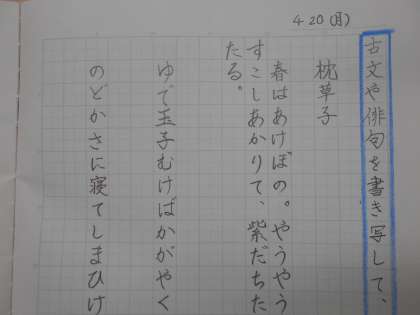 4 20 (月)
古文や俳句を書き写して、
枕草子
春はあけぼの。やうやう
すこしあかりて、紫だちた
たる。
ゆで玉子むけばかがやく
のどかさに寝てしまひけ